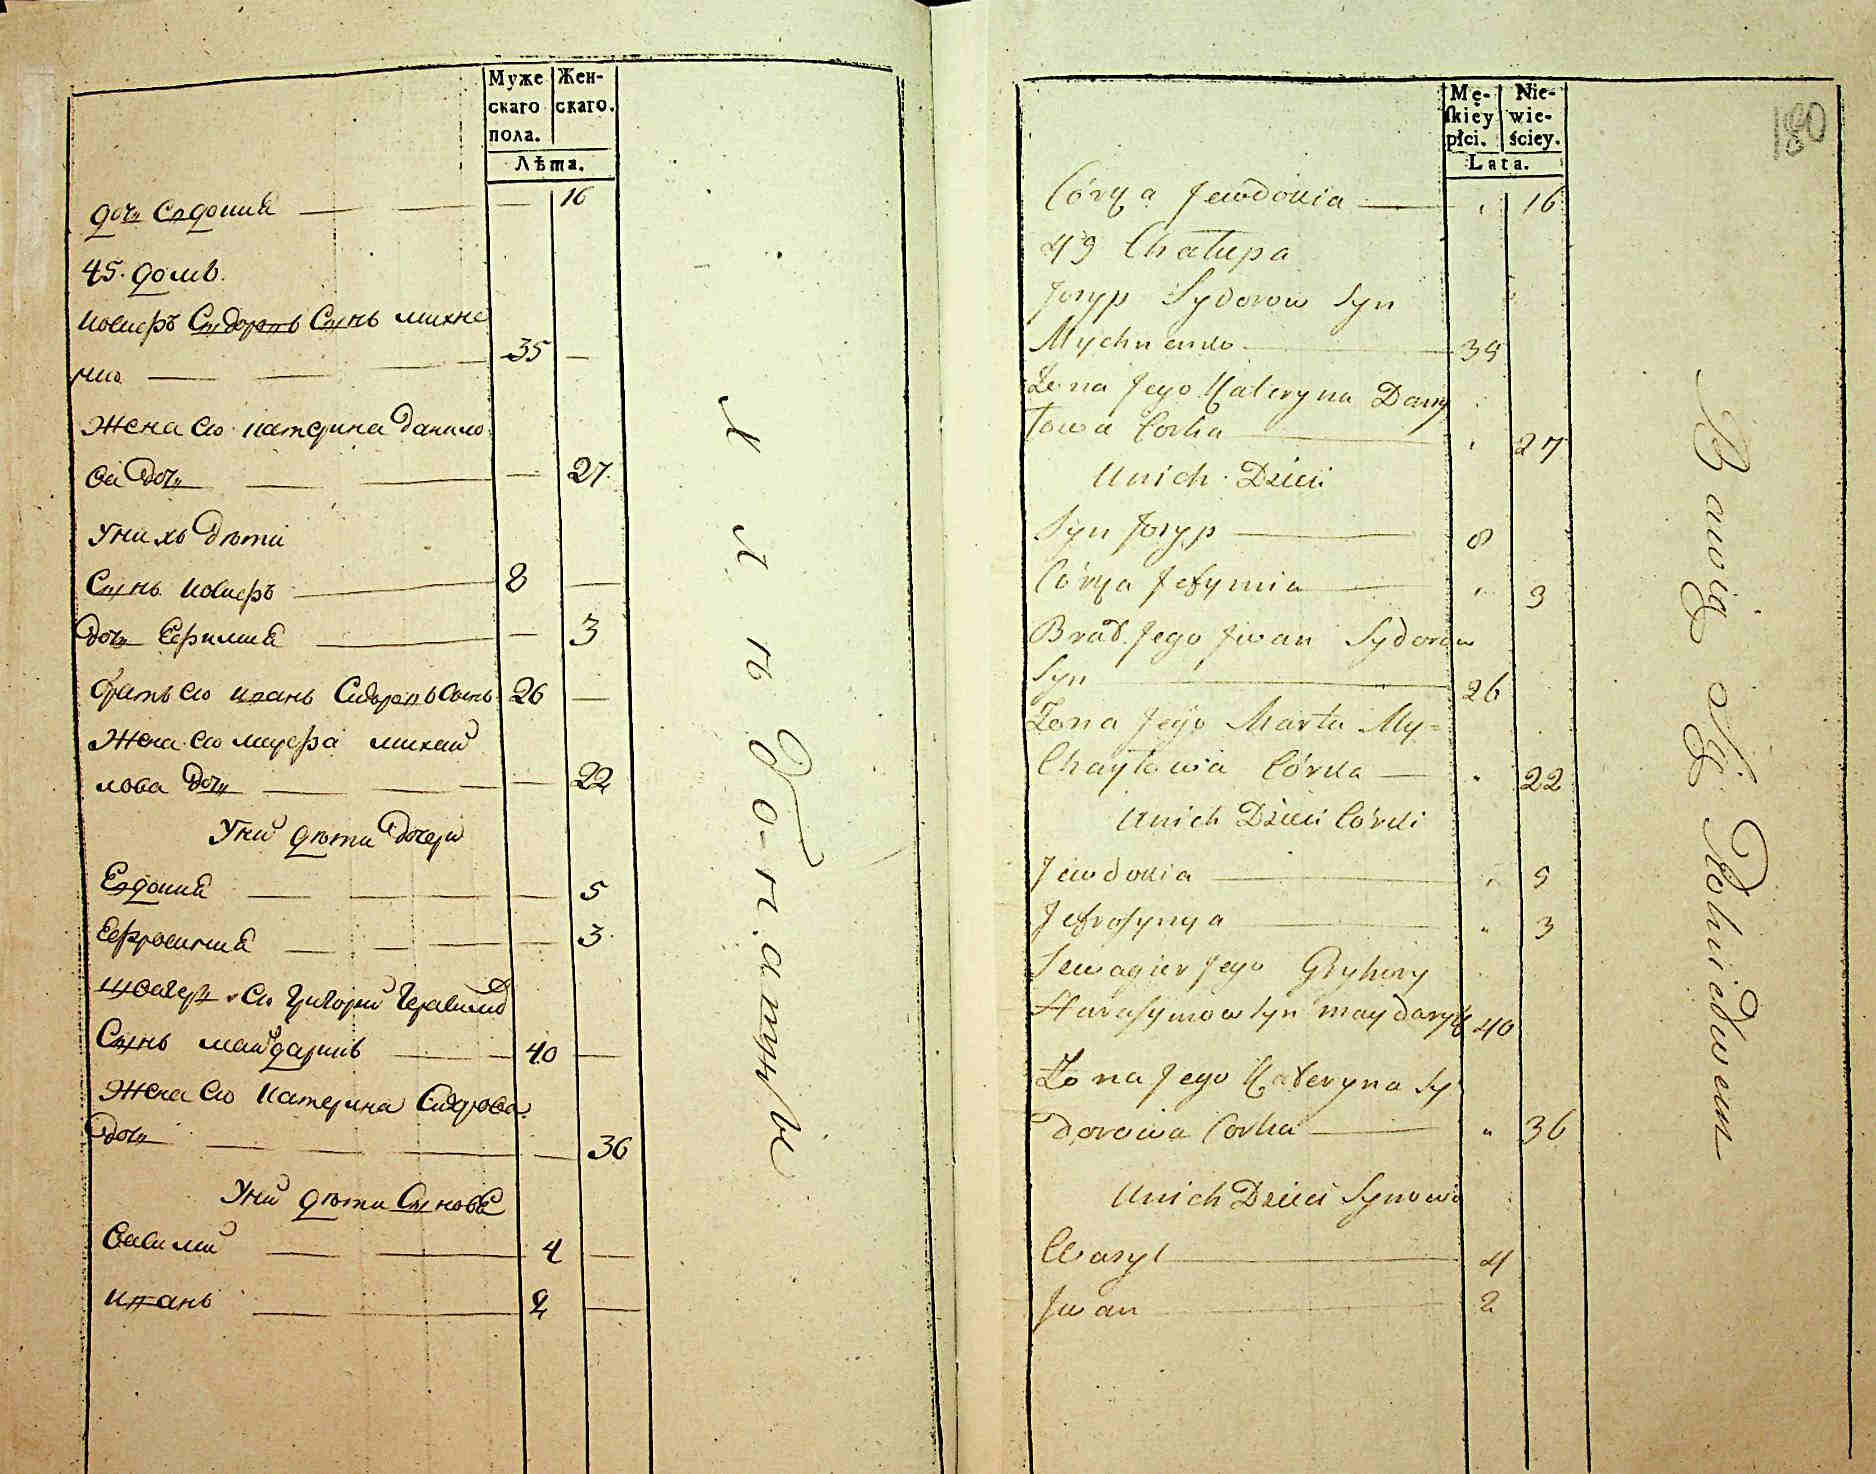 Муже
скаго
пола.
Жен-
скаго.
Лѣта.
дочъ Євдокия 16
45. домъ.
Иосифъ Сидоровъ Сынъ Михне
нко 35
Жена єго катерина данило
ва дочъ 27
У нихъ дѣти
Сынъ Иосифъ 8
дочъ Єфимия 3
братъ єго иванъ Сидоровъ Сынъ 26
Жена єго марфа михай
лова дочъ 22
У них дѣти дочери
Евдокия 5
Ефросиния 3
швагеръ єго Григорий Герасимов
Сынъ майданикъ 40
Жена єго катерина Сидорова
дочъ 36
У них дѣти Сынове
Василий 4
иванъ 2
хлѣбопашцы
180
Mę-
skiey
płci.
Nie-
wie-
ściey.
Lata.
Córka Jewdokia 16
45 Chałupa
Josyp Sydorow Syn
Mychnenko 35
Żona Jego Kateryna Dany
łowa Corka 27
Unich Dzieci
Syn Josyp 8
Córka Jefymia 3
Brat Jego Jwan Sydorow
Syn 26
Żona Jego Marta My=
Chayłowa Córka 22
Unich Dzieci Córki
Jewdokia 5
Jefrosynya 3
Szwagier Jego Gryhory
Harasymow syn maydanyk 40
Żona Jego Kateryna Sy
dorowa Corka 36
Unich Dzieci Synowie
Wasyl 4
Jwan 2
Bawią się Rolnictwem